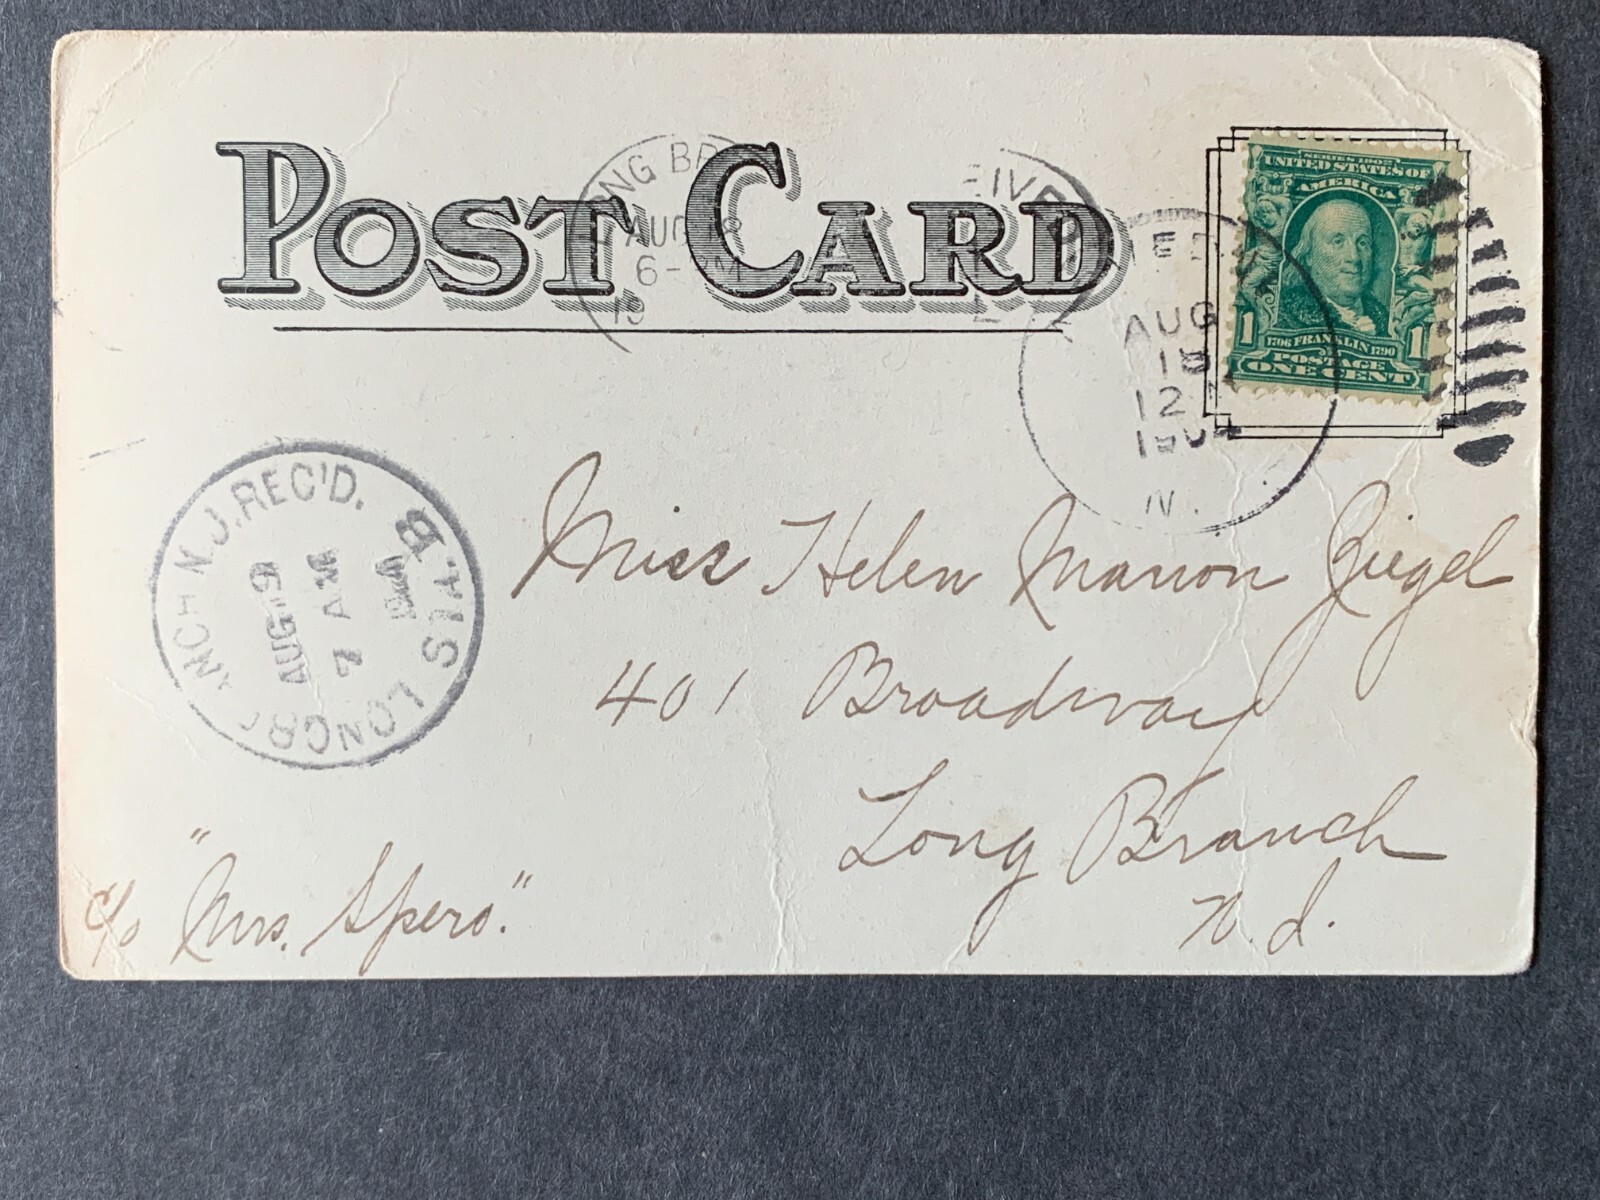 POST CARD
NG BR
AUG 18
6-PM
19
EIVED
AUG
18
12
190
N.
SERIES 1902
UNITED STATES OF
AMERICA
1 1706 FRANKLIN 1790 1
POSTAGE
ONE CENT
LONG NCH N.J. REC'D.
STA. B
AUG 19
7 AM
Miss Helen Marion Ziegel
401 Broadway
Long Branch
N. J.
c/o "Mrs. Spero."